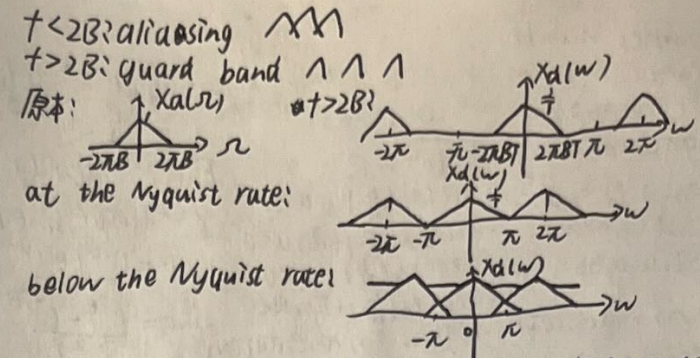 †<2B: aliaosing
†>2B: guard band
原本: Xa(Ω) at>2B: Xd(w) 1/T
-2πB 2πB Ω -2π -π -2πBT 2πBT π 2π w
at the Nyquist rate: Xd(w) 1/T
-2π -π π 2π w
below the Nyquist rate: Xd(w)
-π 0 π w